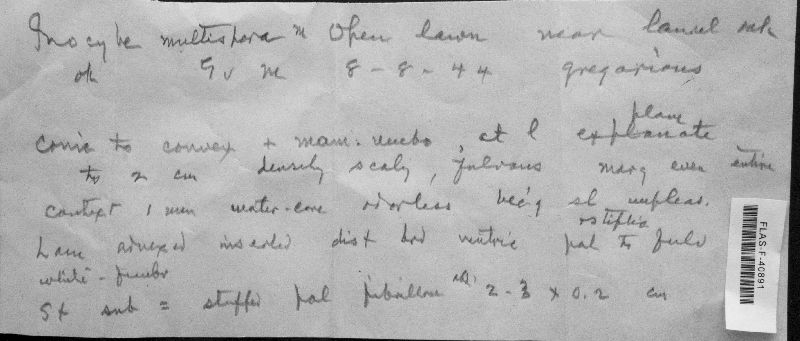 Inocybe multispora m Open lawn near laurel oak
ok G v M 8-8-44 gregarious
plane
conic to convex + mam. umbo, at l explanate
to 2 cm densely scaly, fulvous marg even entire
context 1 mm water-core odorless bec'g sl unpleas.
Lam adnexed inserted dist brd ventric pal to fulv
white-fimbr
St sub = stuffed pal fibrillose 2-3 x 0.2 cm
FLAS-F-40891